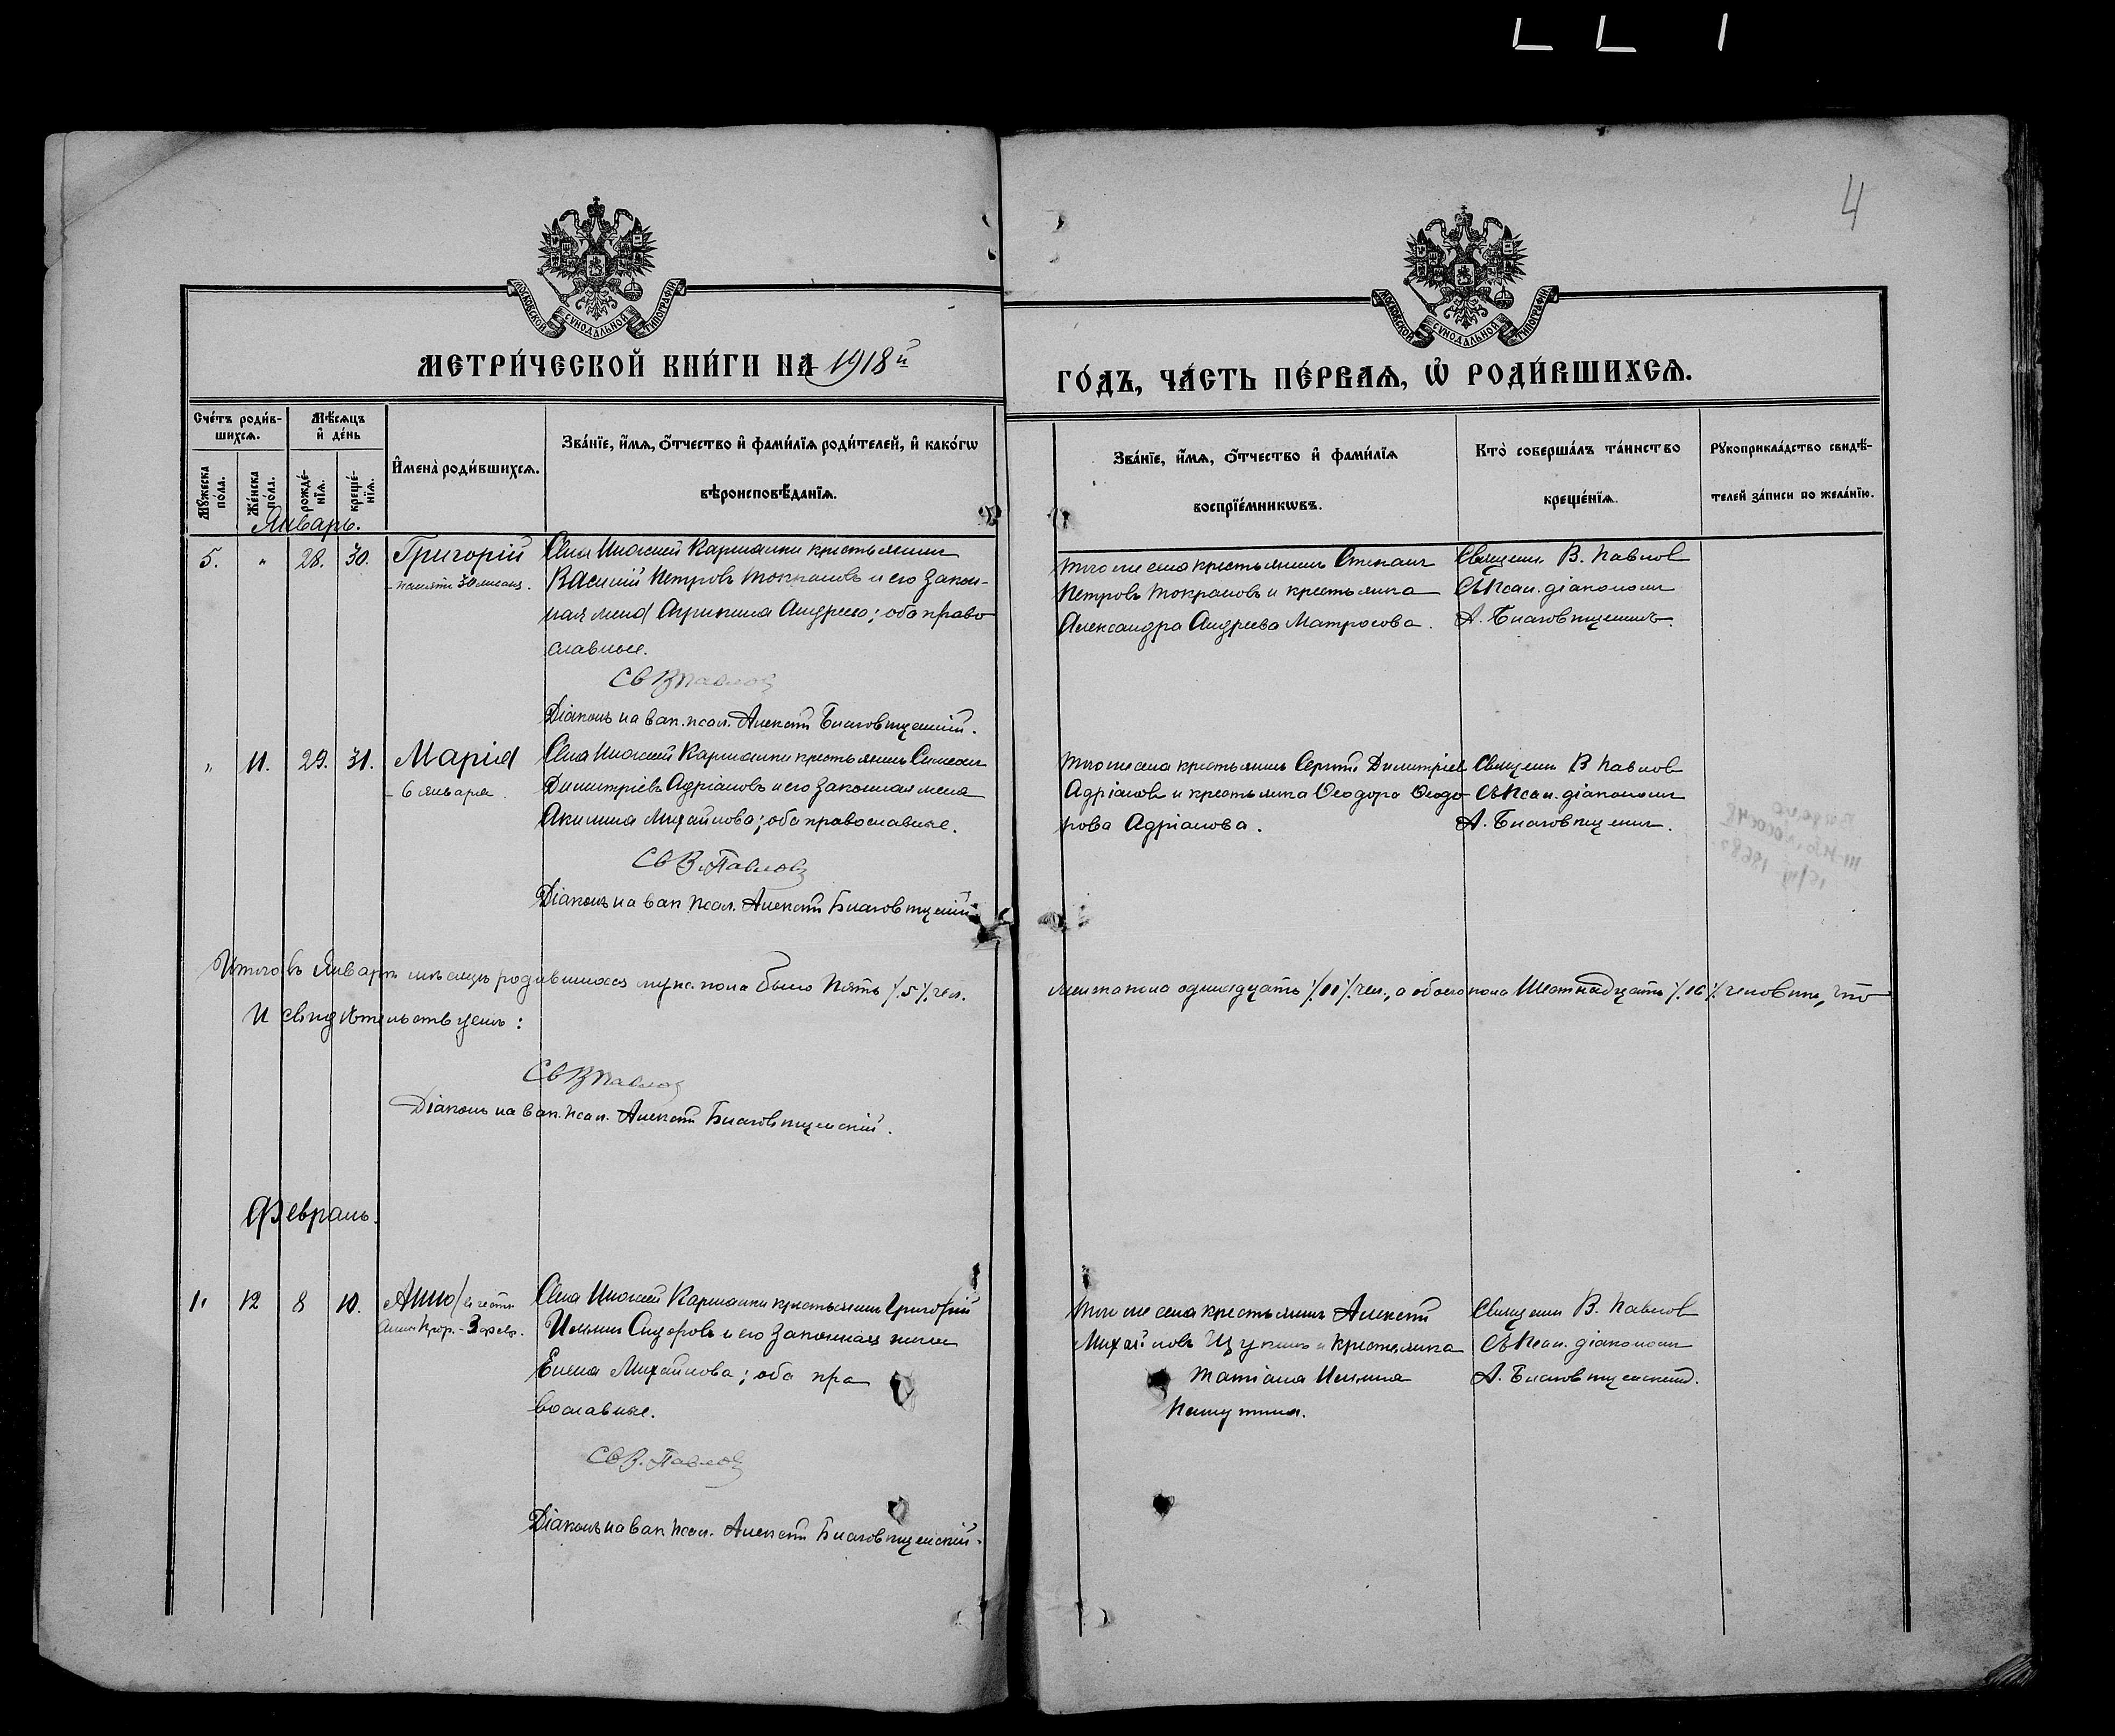 4
МОСКОВСКОЙ СѴНОДАЛЬНОЙ ТИПОГРАФІИ
МОСКОВСКОЙ СѴНОДАЛЬНОЙ ТИПОГРАФІИ
МЕТРИ́ЧЕСКОЙ КНИ́ГИ НА 1918й
ГО́ДЪ, ЧА́СТЬ ПЕ́РВАЯ, Ѡ҆ РОДИ́ВШИХСЯ.
Сче́тъ роди́в-
шихся.
Мѣ́сяцъ
и҆ де́нь
Мꙋ́жеска по́ла.
Же́нска по́ла.
рожде́-
нїя.
креще́-
нїя.
И҆мена̀ роди́вшихся.
Зва́нїе, и҆́мя, ѻ҆́тчество и҆ фами́лїя роди́телей, и҆ како́гѡ
вѣроисповѣ́данїя.
Зва́нїе, и҆́мя, ѻ҆́тчество и҆ фами́лїя
воспрїе́мникѡвъ.
Кто̀ соверша́лъ та́инство
креще́нїя.
Рꙋкоприкла́дство свидѣ́-
телей за́писи по жела́нїю.
Январь.
5. " 28. 30. Григорій
- памяти 30
Села Нижней Кармалки крестьянинъ
Василій Петровъ Токрановъ и его закон-
ная жена Агрипина Андреева; оба право
славные.
Св В Павлов
Діаконъ на вак. псал. Алексѣй Благовѣщенскій.
того же села крестьянинъ Степанъ
Петровъ Токрановъ и крестьянка
Александра Андреева Матросова.
Священ. В. Павлов
съ псал. діаконом
А. Благовѣщенск.
" 11. 29. 31. Марія
- 6 января.
Села Нижней Кармалки крестьянинъ Симеонъ
Димитріевъ Адріановъ и его законная жена
Акилина Михайлова; оба православные.
Св В. Павлов
Діаконъ на вак псал. Алексѣй Благовѣщенскій
того же села крестьянинъ Сергѣй Димитріев
Адріанов и крестьянка Ѳеодора Ѳеодо
рова Адріанова.
Священ В Павлов
съ псал. діаконом
А. Благовѣщенск.
Итого въ Январѣ мѣсяцѣ родившихся муж. пола было пять /.5/. чел.
женска пола одинадцать /.11/. чел., а обоего пола шестнадцать /.16/. человѣкъ, что
и свидѣтельствуемъ:
Св В Павлов
Діаконъ на вак. псал. Алексѣй Благовѣщенскій.
Февраль.
12 8 10. Анна / въ честь
Анны Прор. - 3 февр.
Села Нижней Кармалки крестьянинъ Григорій
Ильинъ Сидоровъ и его законная жена
Елена Михайлова; оба пра
вославные.
Св В. Павлов
Діаконъ на вак псал. Алексѣй Благовѣщенскій.
того же села крестьянинъ Алексѣй
Михайловъ Щукинъ и крестьянка
Татіана Ильина
Священ В. Павлов
съ псал. діаконом
А. Благовѣщенскій.